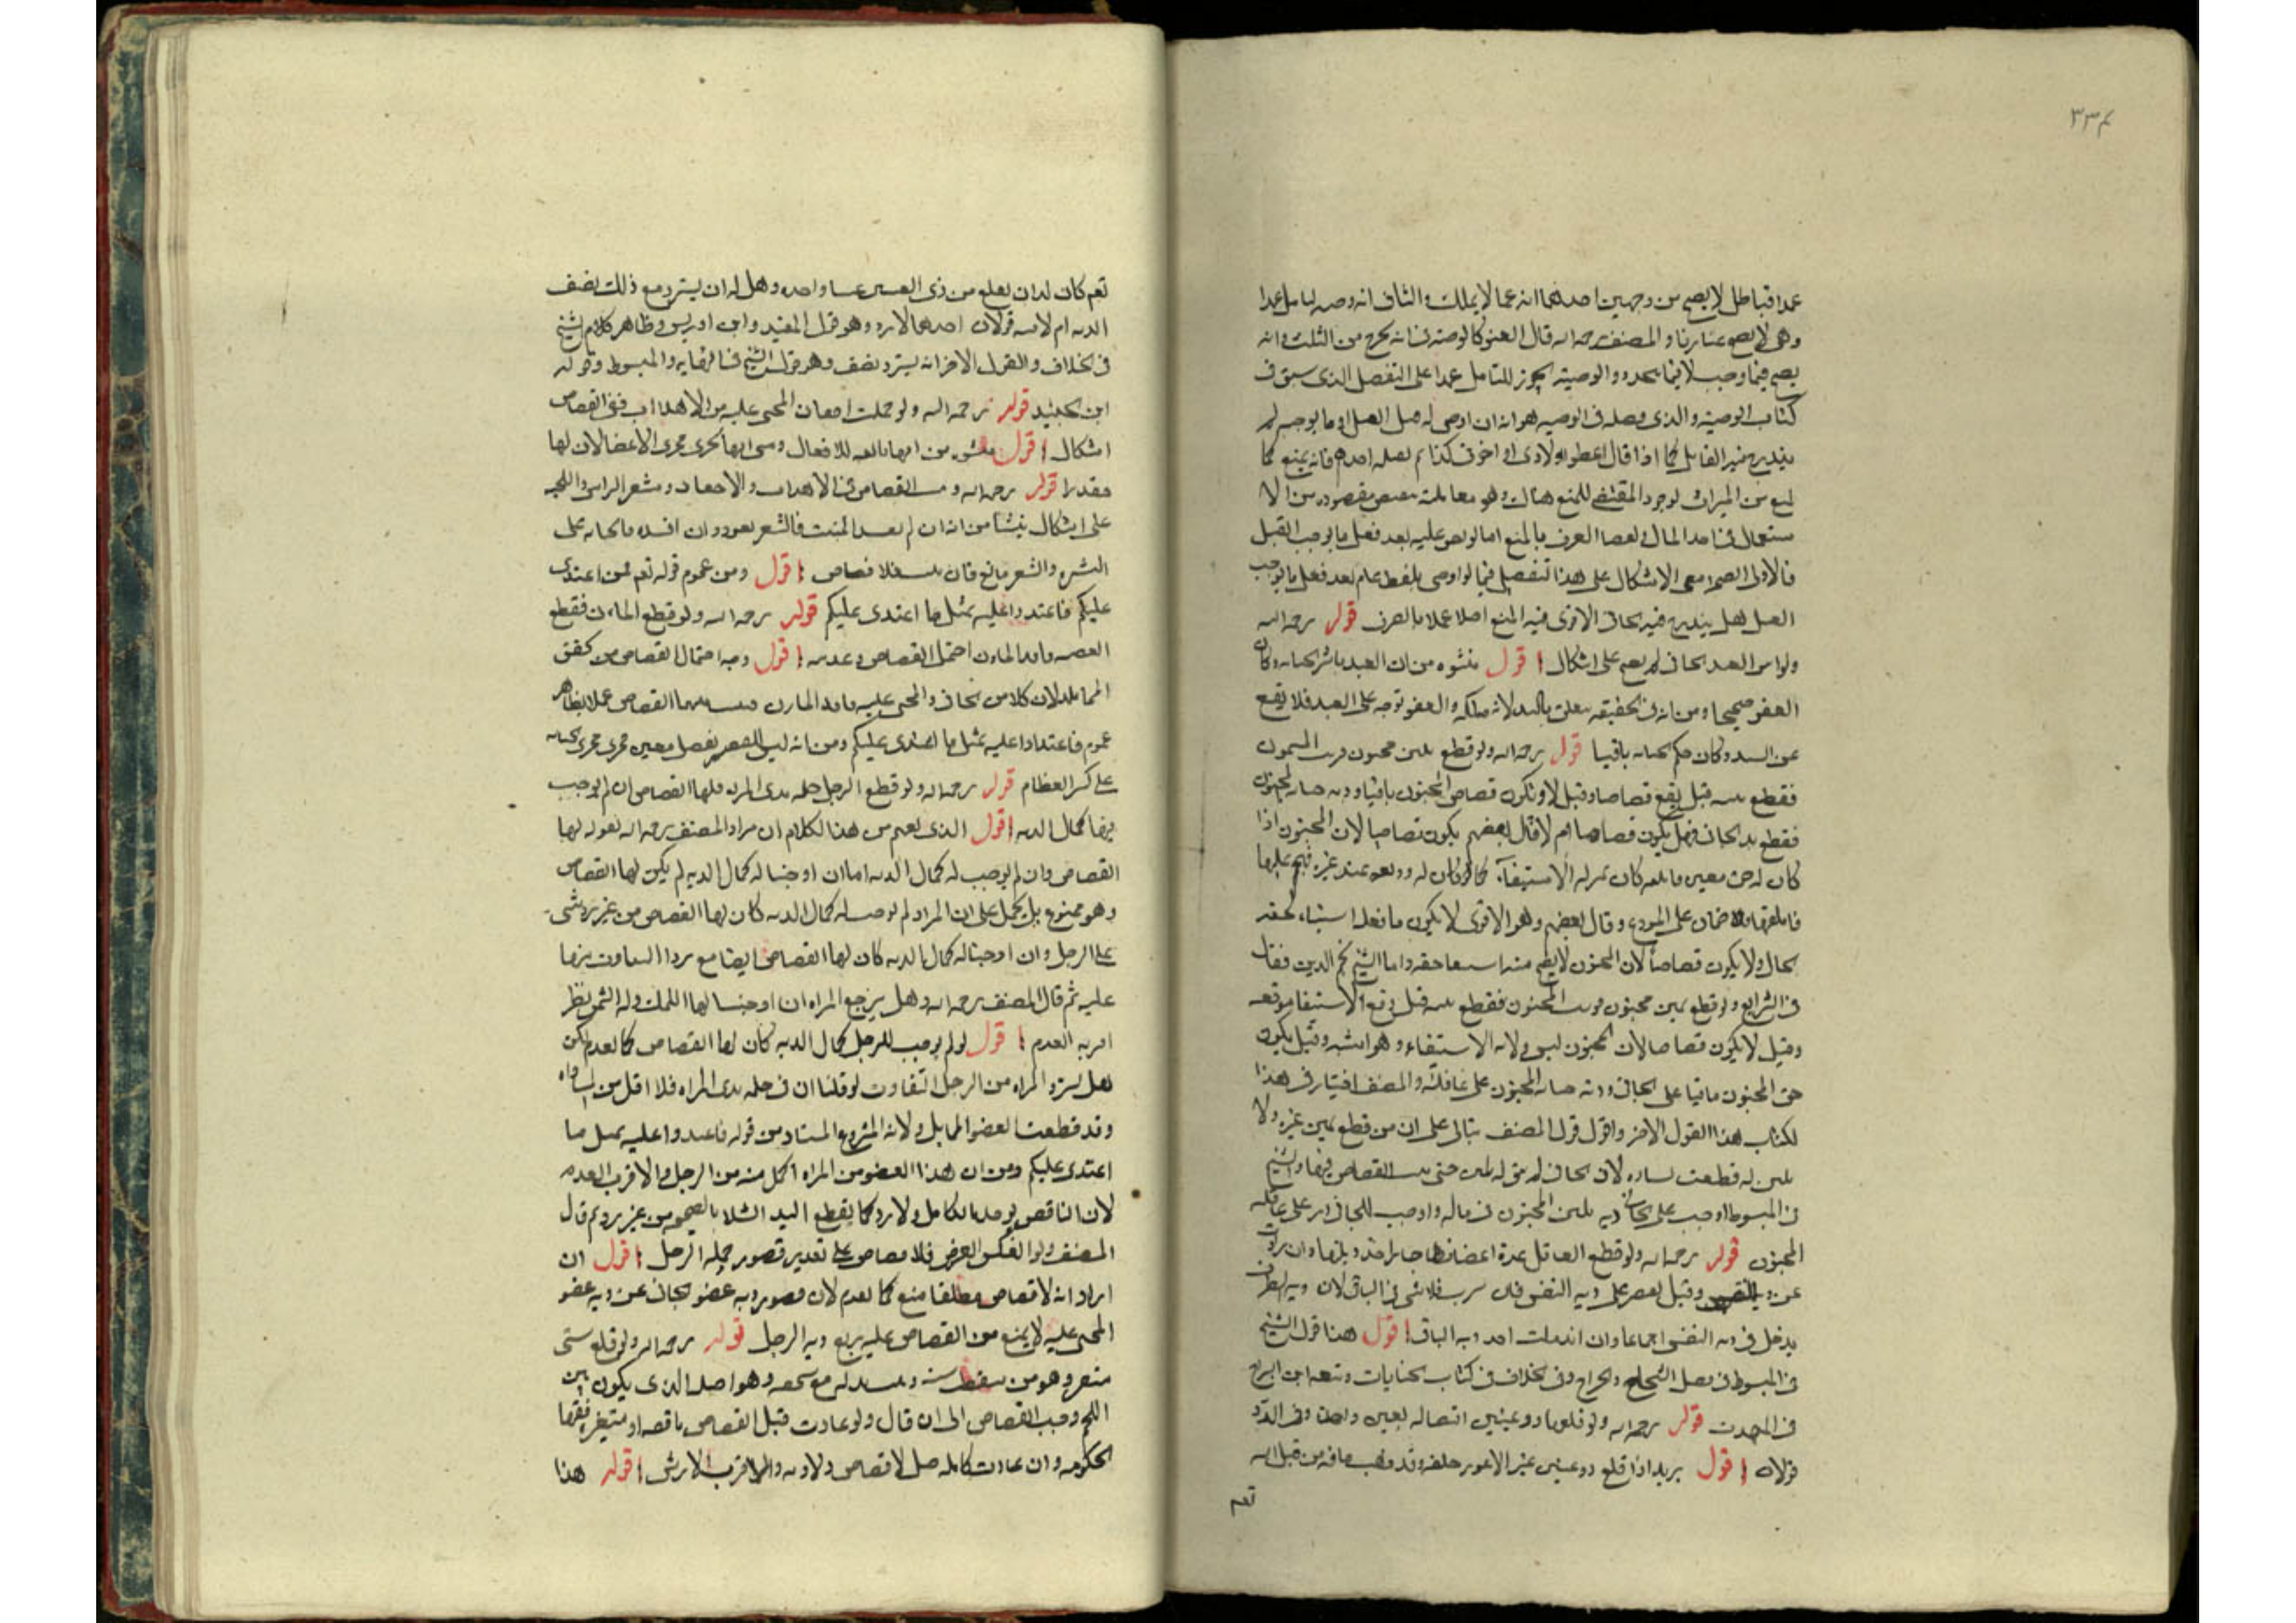 ٣٣٤
عمدا فباطل لا يصح من وجهين احدهما انه عما لا يملك والثانى انه وصيه لقاتل عمدا
وهى لا تصح عندنا والمصنف رحمه الله قال العفو كالوصية فى انه يخرج من الثلث وانه
يصح فيما وجب لا فيما يتجدد والوصية تجوز للقاتل عمدا على التفصيل الذى سبق فى
كتاب الوصية والذى فصله فى الوصيه هو انه ان اوصى له قبل القتل او ما يوجبه لم
يندرج فيه القاتل كما اذا قال اعطوا اولادى او اخوتى كذا ثم قتله احدهم فانه يمنع كما
يمنع من الميراث لوجود المقتضى للمنع هناك وهو معاملته بنقيض مقصوده من الا
ستعجال فى اخذ المال وقضاء العرف بالمنع اما لو نص عليه بعد فعل ما يوجب القتل
فالاولى الصحه مع الاشكال على هذا التفصيل فيما لو اوصى بلفظ عام بعد فعل ما يوجب
القتل هل يندرج فيه الجانى الاقوى فيه المنع اصلا عملا بالعرف قوله رحمه الله
ولو ابرا العبد الجانى لم يصح على اشكال اقول منشؤه من ان العبد باشر الجنايه وكان
العفو صحيحا ومن انه فى الحقيقه يتعلق بالسيد لانه ملكه والعفو توجه على العبد فلا يقع
عن السيد وكان حكم الجنايه باقيا قوله رحمه الله ولو قطع يمين مجنون فوثب المجنون
فقطع يمينه قيل يقع قصاصا وقيل لا ويكون قصاص المجنون باقيا وديه جنايه المجنون
فقطع يد الجانى فهل يكون قصاصا ام لا قال بعضهم يكون قصاصا لان المجنون اذا
كان له حق معين فاتلفه كان بمنزله الاستيفآء كما لو كان له وديعه عند غيره فهجم عليها
فاتلفها فلا ضمان على المودع وقال بعضهم وهو الاقوى لا يكون ما فعله استيفاء لحقه
بحال ولا يكون قصاصا لان المجنون لا يصح منه استيفا حقه واما الشيخ نجم الدين فقال
فى الشرايع ولو قطع يمين مجنون فوثب المجنون فقطع يمينه قيل وقع الاستيفا موقعه
وقيل لا يكون قصاصا لان المجنون ليس له ولاية الاستيفاء وهو اشبه وقيل يكون
حق المجنون باقيا على الجانى ودية جنايه المجنون على عاقلته والمصنف اختيار فى هذا
لكتاب هذا القول الاخر واقول قول المصنف يبتنى على ان من قطع يمين غيره ولا
يمين له قطعت يساره لان الجانى لم يبق له يمين حتى يثبت القصاص فيها والشيخ
فى المبسوط اوجب على الجانى ديه يمين المجنون فى ماله واوجب للجانى على عاقله
المجنون قوله رحمه الله ولو قطع القاتل عدة اعضائها جاز اخذ دياتها وان زادت
عن دية النفس وقيل يقتصر على ديه النفس فان سرت فلا شى فى الباقى لان ديه الطرف
يدخل فى ديه النفس اجماعا وان اندملت اخذ ديه الباقى اقول هذا قول الشيخ
فى المبسوط فى فصل الشجاج والجراح وفى الخلاف فى كتاب الجنايات وتبعه ابن البراج
فى المهذب قوله رحمه الله ولو قلعها ذو عينين اقتص له بعين واحدة وفى الرد
قولان اقول يريد اذا قلع ذو عينين عين الاعور خلقة وقد ذهب بافة من قبل الله
تعم
تعم كان له ان يقلع من ذى العينين عينا واحده وهل له ان يسترد مع ذلك نصف
الديه ام لا فيه قولان احدهما لا يرد وهو قول المفيد وابن ادريس وظاهر كلام الشيخ
فى الخلاف والقول الاخر انه يسترد نصف وهو قول الشيخ فى النهايه والمبسوط وقول
ابن الجنيد قوله رحمه الله ولو جملت اجفان المجنى عليه من الاهداب ففى القصاص
اشكال اقول ينشؤ من انها تابعه للاجفان ومن انها تجرى مجرى الاعضا لان لها
مقدرا قوله رحمه الله ويثبت القصاص فى الاهداب والاجفان وشعر الراس واللحيه
على اشكال ينشأ من انه ان لم يفسد المنبت فالشعر يعود وان افسده فالجنايه على
البشره والشعر تابع فان نبت فلا قصاص اقول ومن عموم قوله تعم فمن اعتدى
عليكم فاعتدوا عليه بمثل ما اعتدى عليكم قوله رحمه الله ولو قطع المارن فقطع
القصبه فاقد المارن احتمل القصاص وعدمه اقول وجه احتمال القصاص من تحقق
المماثله لان كلا من الجانى والمجنى عليه فاقد المارن فيثبت بينهما القصاص عملا بظاهر
عموم فاعتدوا عليه بمثل ما اعتدى عليكم ومن انه ليس للقصبه مفصل معين فجرى مجرى الجنايه
على كسر العظام قوله رحمه الله ولو قطع الرجل حلمه ثدى المراه فلها القصاص ان لم نوجب
فيها كمال الديه اقول الذى يفهم من هذا الكلام ان مراد المصنف رحمه الله بقوله لها
القصاص وان لم نوجب له كمال الديه اما ان اوجبنا له كمال الديه لم يكن لها القصاص
وهو ممنوع بل يحمل على ان المراد لو لم نوجب له كمال الديه كان لها القصاص من غير رد شى
على الرجل وان اوجبنا له كمال الديه كان لها القصاص ايضا مع رد التفاوت بينهما
عليه ثم قال المصنف رحمه الله وهل يرجع المراه ان اوجبنا لها الثلث وله الثمن نظر
اقربه العدم اقول لو لم نوجب للرجل كمال الديه كان لها القصاص كما تقدم لكن
هل تسترد المراه من الرجل التفاوت لو قلنا ان فى حلمه ثدى المراه فلا اقل من المساواه
وقد قطعت العضو المماثل ولانه المشروع المستفاد من قوله فاعتدوا عليه بمثل ما
اعتدى عليكم ومن ان هذا العضو من المراه اكمل منه من الرجل والاقرب العدم
لان الناقص يوخذ بالكامل ولا رد كما تقطع اليد الشلا بالصحيحه من غير رد ثم قال
المصنف ولو انعكس الفرض فلا قصاص على تقدير قصور حلمه الرجل اقول ان
اراد انه لا قصاص مطلقا منع كما تقدم لان قصور ديه عضو الجانى عن ديه عضو
المجنى عليه لا يمنع من القصاص عليه يربع ديه الرجل قوله رحمه الله ولو قلع سنى
مثغر وهو من سقطت سنه وبدلت مع سنخه وهو اصله الذى يكون بين
اللحم وجب القصاص الى ان قال ولو عادت قبل القصاص ناقصه او متغيره ففيها
الحكومه وان عادت كامله قيل لا قصاص ولا ديه والاقرب الارش اقول هذا